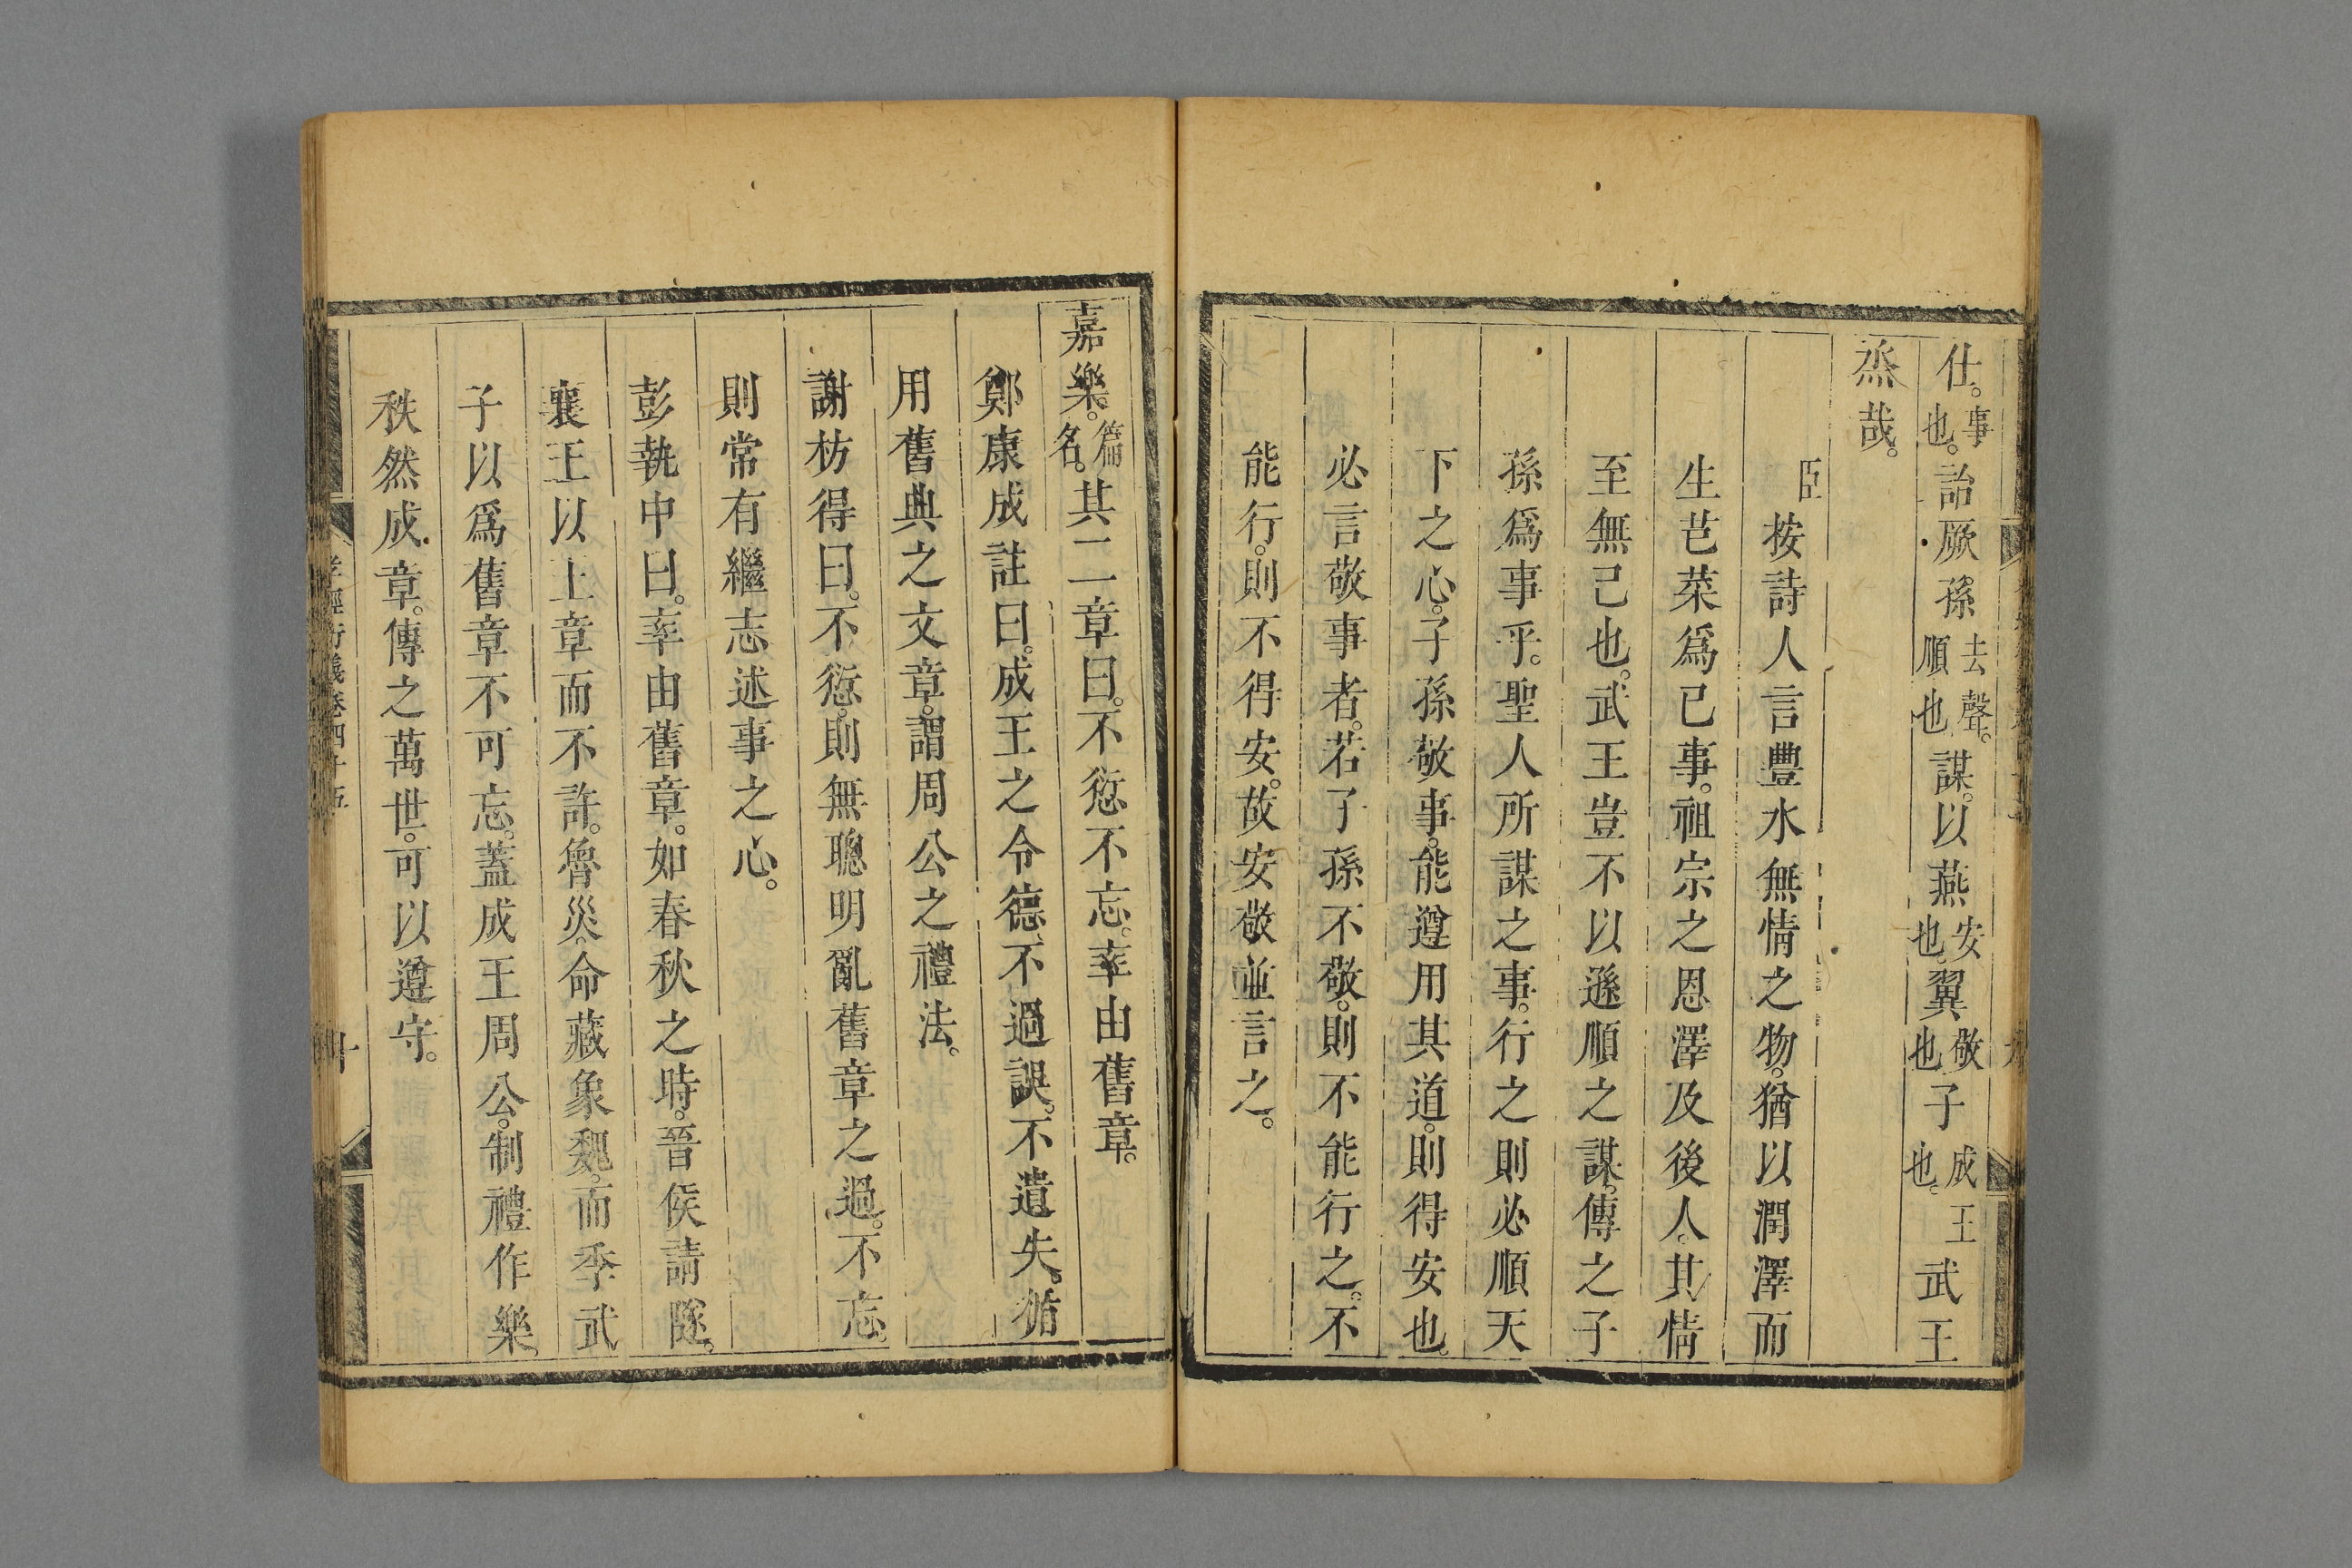 仕。事也。詒厥孫去聲。順也謀。以燕安也。翼敬也子成王也。武王
烝哉。
臣按詩人言豐水無情之物。猶以潤澤而
生芑菜爲已事。祖宗之恩澤及後人。其情
至無已也。武王豈不以遜順之謀。傳之子
孫爲事乎。聖人所謀之事。行之則必順天
下之心。子孫敬事。能遵用其道。則得安也。
必言敬事者。若子孫不敬。則不能行之。不
能行。則不得安。故安敬並言之。
嘉樂。篇名。其二章曰。不愆不忘。率由舊章。
鄭康成註曰。成王之令德。不過誤。不遺失。循
用舊典之文章。謂周公之禮法。
謝枋得曰。不愆。則無聰明亂舊章之過。不忘。
則常有繼志述事之心。
彭執中曰。率由舊章。如春秋之時。晉侯請隧。
襄王以上章而不許。魯災。命藏象魏。而季武
子以爲舊章不可忘。蓋成王周公。制禮作樂。
秩然成章。傳之萬世。可以遵守。
孝經衍義卷四十五
十